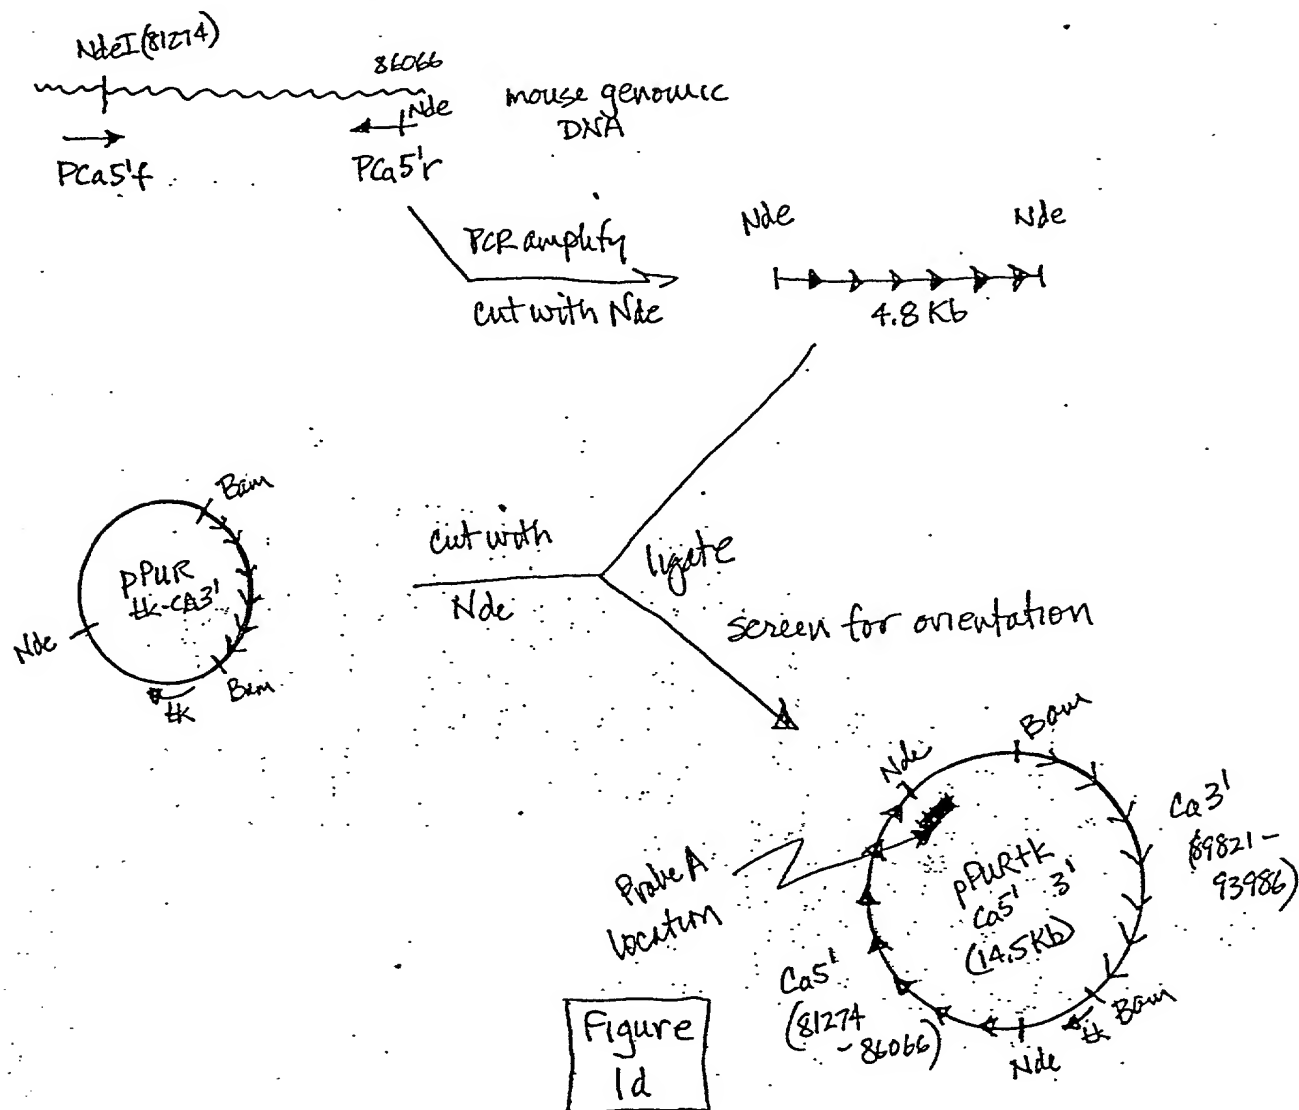 NdeI(81274)
86066
Nde
mouse genomic
DNA
PCa5'f
PCa5'r
PCR amplify
cut with Nde
Nde
Nde
4.8 Kb
Bam
pPUR
tk-CA3'
Nde
Bam
tk
cut with
Nde
ligate
screen for orientation
Nde
Bam
Ca3'
(89821-
93986)
Probe A
location
pPURtk
Ca5' 3'
(14.5Kb)
Ca5'
(81274
-86066)
tk
Bam
Nde
Figure
1d